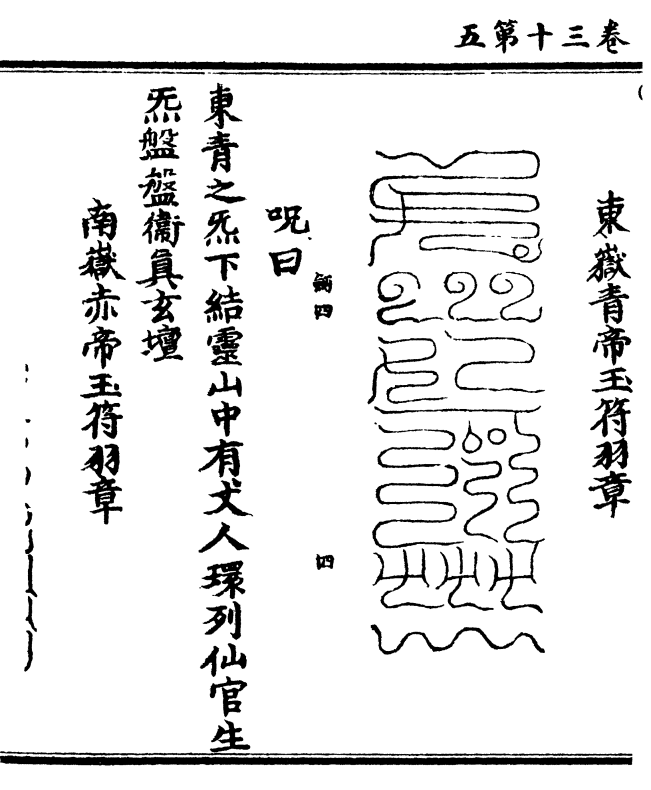 卷三十第五
東嶽青帝玉符羽章
四
呪曰
東青之炁下結靈山中有丈人環列仙官生
炁盤盤衞眞玄壇
南嶽赤帝玉符羽章